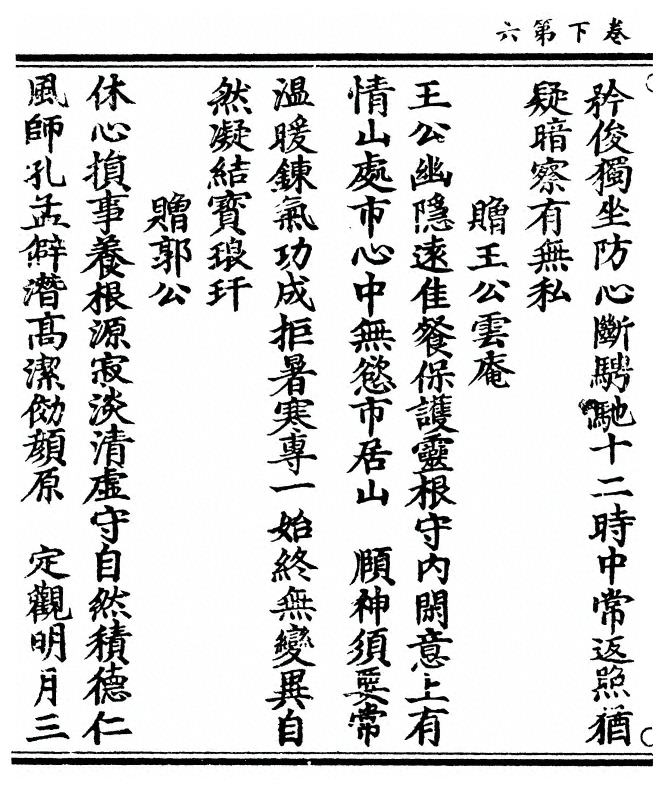 卷下第六
矜俊獨坐防心斷騁馳十二時中常返照猶
疑暗察有無私
贈王公雲庵
王公幽隱遠佳餐保護靈根守内閑意上有
情山處市心中無慾市居山　頤神須要常
温暖鍊氣功成拒暑寒專一始終無變異自
然凝結寶琅玕
贈郭公
休心損事養根源寂淡清虛守自然積德仁
風師孔孟解潛高潔効顔原　定觀明月三